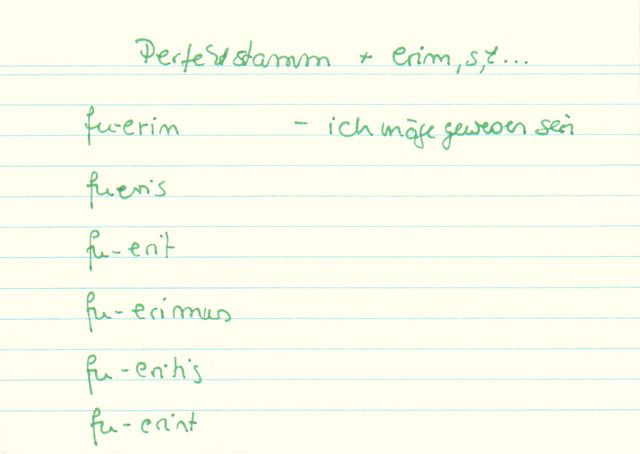 Perfektstamm + erim, s, t...
fu-erim - ich möge gewesen sein
fueris
fu-erit
fu-erimus
fu-eritis
fu-erint